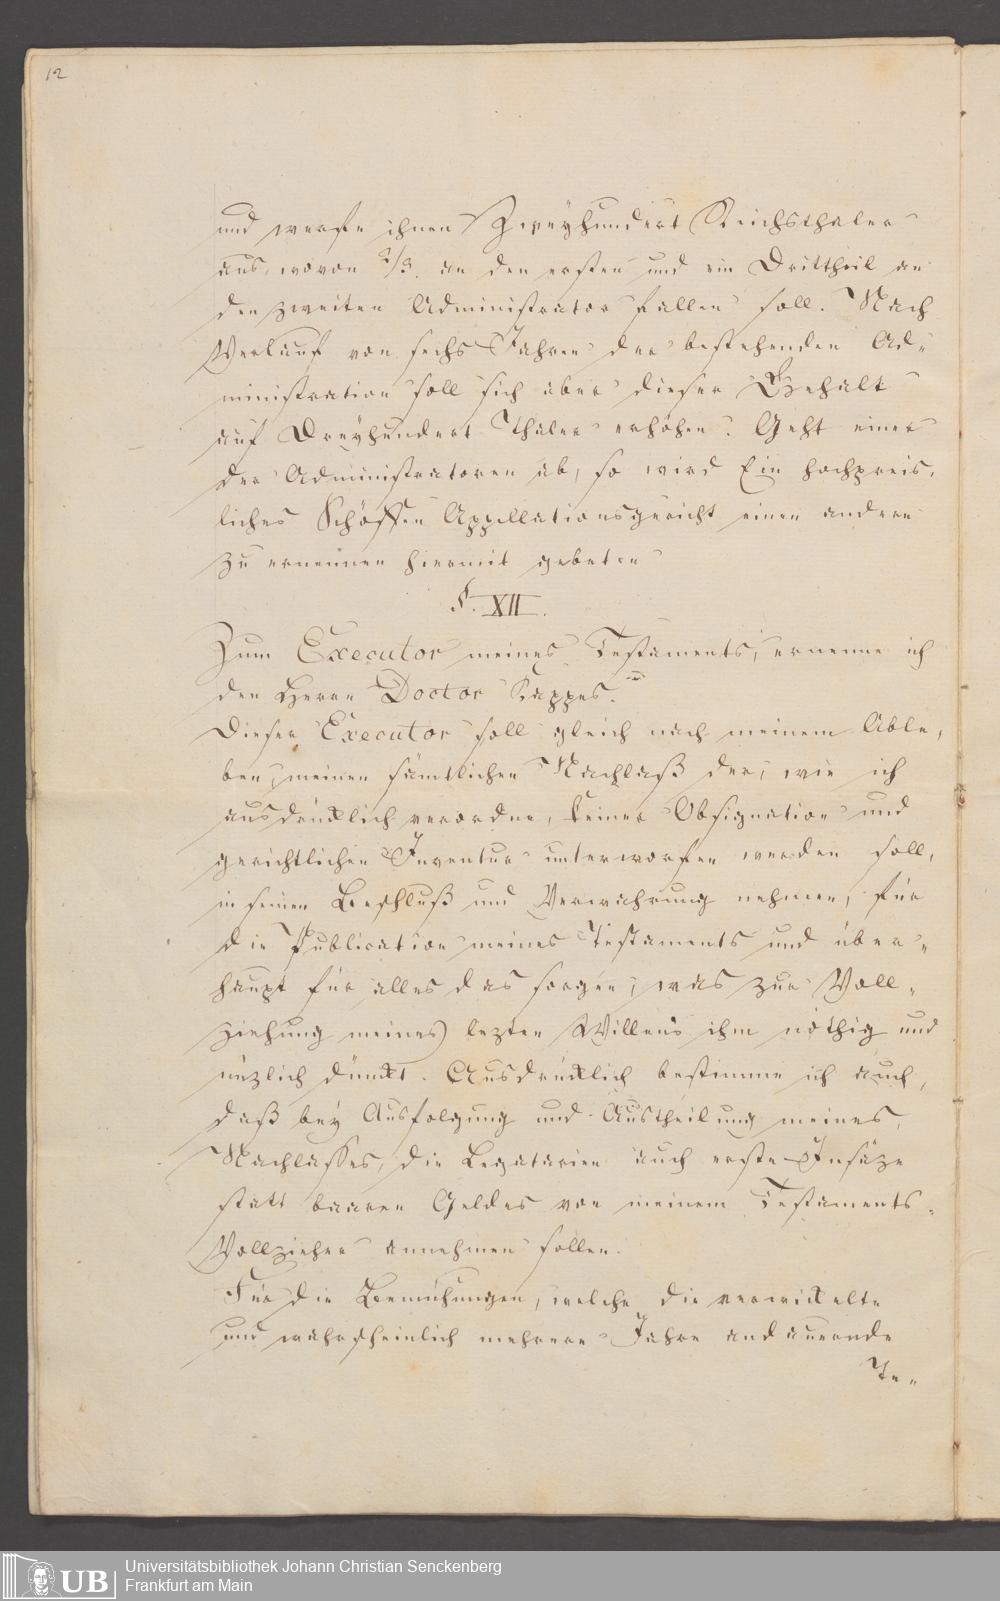 12
und werfe ihnen Zweyhundert Reichsthaler
aus, wovon 2/3. an den ersten und ein Drittheil an
den zweiten Administrator fallen soll. Nach
Verlauf von sechs Jahren der bestehenden Ad-
ministration soll sich aber dieser Gehalt
auf Dreyhundert Thaler erhöhen. Geht einer
der Administratoren ab, so wird Ein hochpreis-
liches Schöffen Appellationsgericht einen andern
zu ernennen hiermit gebeten
§. XII.
Zum Executor meines Testaments, ernenne ich
den Herrn Doctor Kappes.
Dieser Executor soll gleich nach meinem Able-
ben, meinen sämtlichen Nachlaß der, wie ich
ausdrücklich verordne, keiner Obsignation und
gerichtlichen Inventur unterworfen werden soll,
in seinen Beschluß und Verwahrung nehmen, für
die Publication meines Testaments und über-
haupt für alles das sorgen, was zur Voll-
ziehung meines lezten Willens ihm nöthig und
nüzlich dünckt. Ausdrücklich bestimme ich auch,
daß bey Ausfolgung und Austheilung meines
Nachlasses, die Legatarien auch erste Insäze
statt baaren Geldes von meinem Testaments-
Vollzieher annehmen sollen.
Für die Bemühungen, welche die verwickelte
und wahrscheinlich mehrere Jahre andauernde
Te-
UB
Universitätsbibliothek Johann Christian Senckenberg
Frankfurt am Main